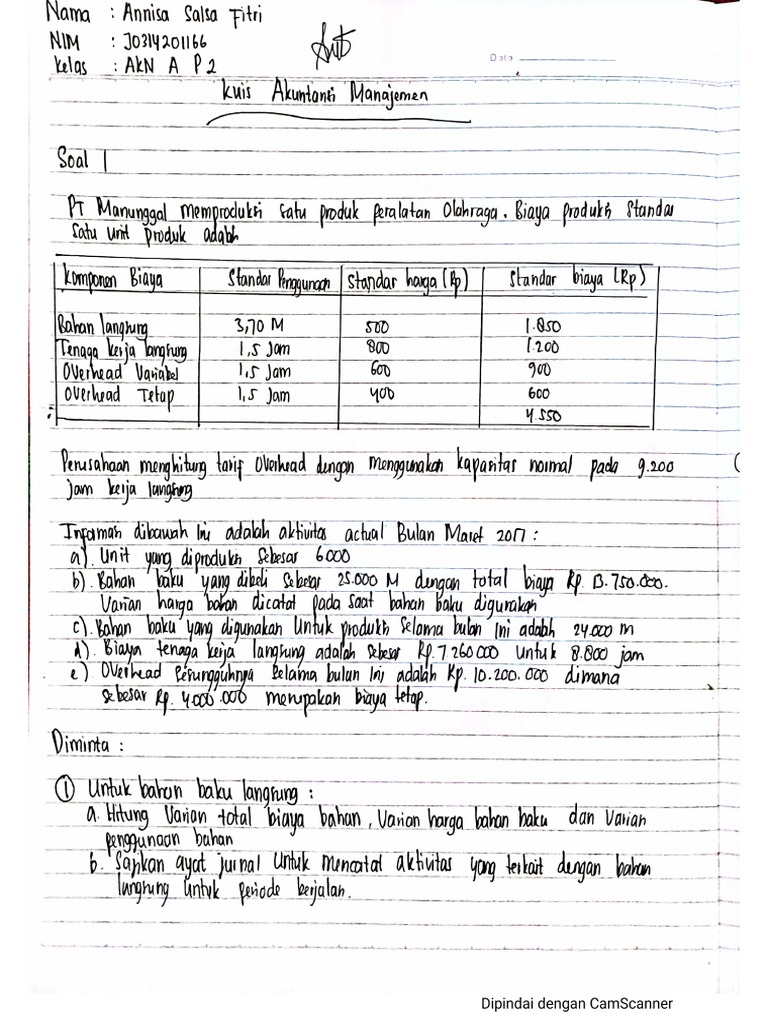 Nama : Annisa Salsa Fitri
NIM : J0314201166
Kelas : AKN A P2
Date
Kuis Akuntansi Manajemen
Soal 1
PT Manunggal memproduksi satu produk peralatan Olahraga. Biaya produksi Standar
Satu unit produk adalah
Komponen Biaya Standar Penggunaan Standar harga (Rp) Standar biaya (Rp)
Bahan langsung 3,70 M 500 1.850
Tenaga kerja langsung 1,5 Jam 800 1.200
Overhead Variabel 1,5 Jam 600 900
Overhead Tetap 1,5 Jam 400 600
4.550
Perusahaan menghitung tarif Overhead dengan menggunakan kapasitas normal pada 9.200
Jam kerja langsung
Informasi dibawah Ini adalah aktivitas actual Bulan Maret 2017 :
a). Unit yang diproduksi Sebesar 6000
b). Bahan baku yang dibeli Sebesar 25.000 M dengan total biaya Rp. 13.750.000.
Varian harga bahan dicatat pada saat bahan baku digunakan
c). Bahan baku yang digunakan Untuk produksi Selama bulan Ini adalah 24.000 m
d). Biaya tenaga kerja langsung adalah Sebesar Rp. 7 260 000 Untuk 8.800 jam
e). Overhead Sesungguhnya Selama bulan Ini adalah Rp. 10.200.000 dimana
Sebesar Rp. 4.000.000 merupakan biaya tetap.
Diminta :
① Untuk bahan baku langsung :
a. Hitung Varian total biaya bahan, Varian harga bahan baku dan Varian
penggunaan bahan
b. Sajikan ayat jurnal Untuk mencatat aktivitas yang terkait dengan bahan
langsung Untuk periode berjalan.
Dipindai dengan CamScanner